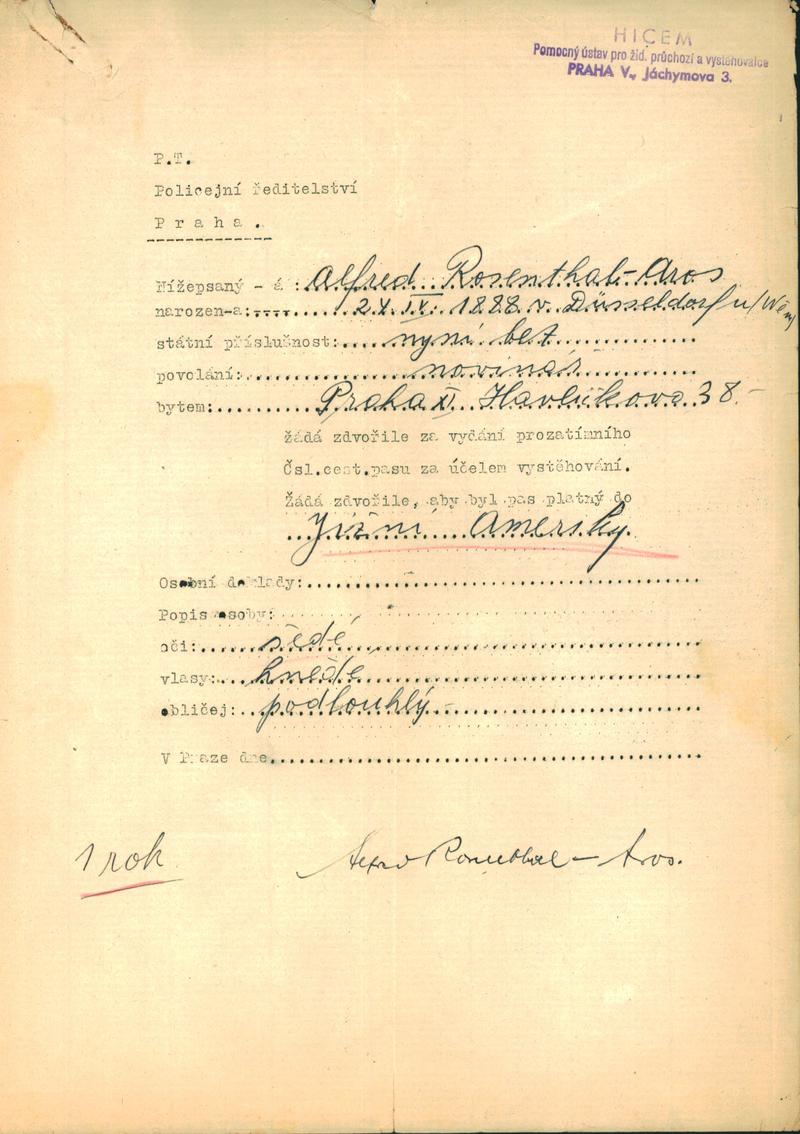 HICEM
Pomocný ústav pro žid. průchozí a vystěhovalce
PRAHA V., Jáchymova 3.
P.T.
Policejní ředitelství
Praha.
Nížepsaný - á : Alfred Rosenthal-Aros
narozen-a: IX. 1888 v Düsseldorfu
státní příslušnost: nyní bez
povolání: novinář
bytem: Praha XI Havlíčkova 38.-
žádá zdvořile za vydání prozatímního
Čsl.cest.pasu za účelem vystěhování.
Žádá zdvořile, aby byl pas platný do
Jižní Ameriky.
Osobní doklady:
Popis osoby:
oči: šedé
vlasy: hnědé
obličej: podlouhlý
V Praze dne
1 rok
Rosenthal - Aros.